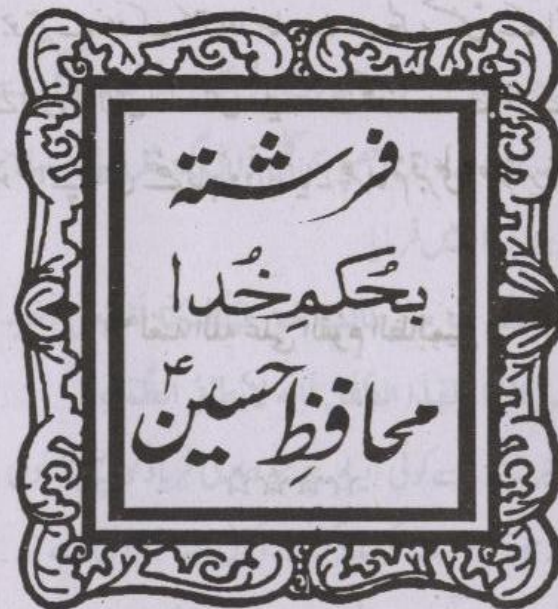 فرشتہ
بحُکمِ خُدا
محافظِ حسینؑ